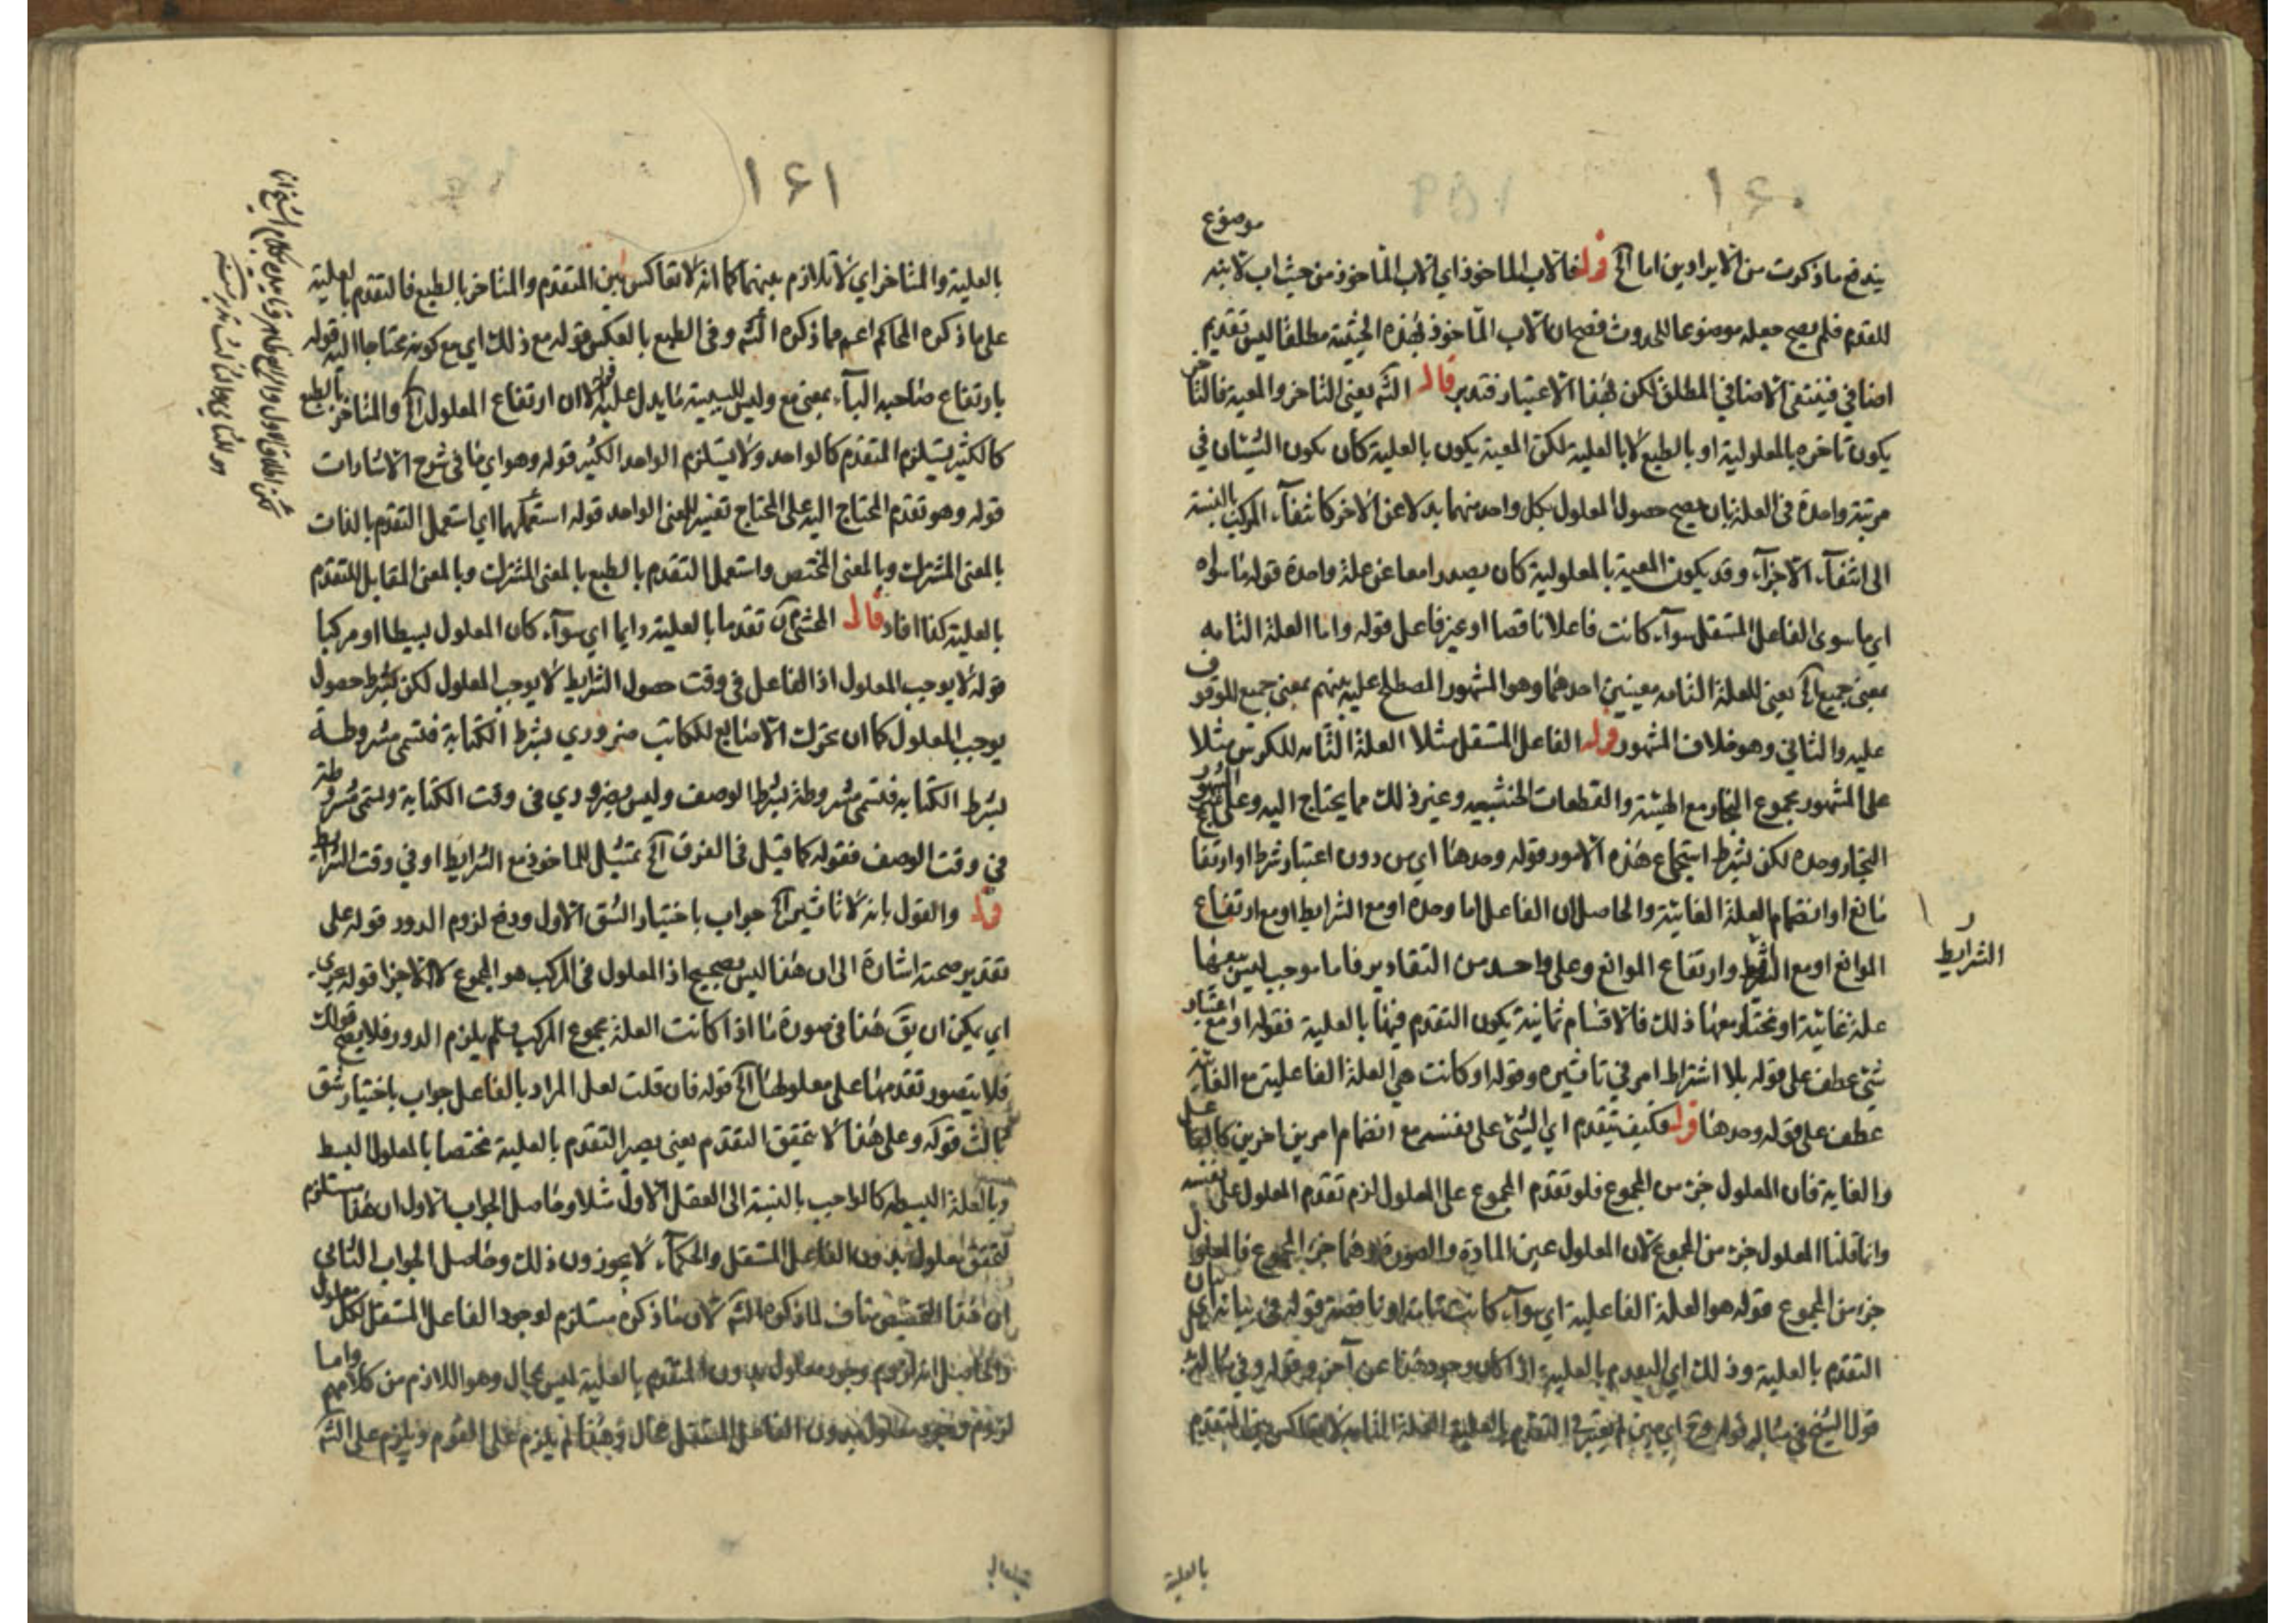 ١۶٠
موضوع
يندفع ما ذكرت من الايرادين اما الخ قوله فالاب الماخوذ اي الاب الماخوذ من حيث اب لابنه
للتقدم فلم يصح جعله موضوعا للحدوث فصح ان الاب الماخوذ بهذه الحيثية مطلقا ليس تقديم
اضافي فينتفي الاضافي المطلق لكن هذا الاعتبار فتدبر قال الشه يعني التاخر والمعية فالتاخر
يكون تاخره بالمعلولية او بالطبع لا بالعلية لكن المعية يكون بالعلية كان يكون الشيئان في
مرتبة واحدة في العلة بان يصح حصول المعلول بكل واحد منهما بدلا عن الاخر كانتفآء المركب بالنسبة
الى انتفآء الاجزآء وقد يكون المعية بالمعلولية كان يصدرا معا عن علة واحدة قوله ما سواه
اي ما سوى الفاعل المستقل سوآء كانت فاعلا ناقصا او غير فاعل قوله واما العلة التامه
بمعنى جميع الخ يعني للعلة التامه معنيين احدهما وهو المشهور المصطلح عليه بينهم بمعنى جميع الموقوف
عليه والثاني وهو خلاف المشهور قوله الفاعل المستقل مثلا العلة التامه للكرسي مثلا
على المشهور مجموع النجار مع الهيئة والقطعات الخشبيه وغير ذلك مما يحتاج اليه وعلى
النجار وحده لكن بشرط استجماع هذه الامور قوله وحدها اي من دون اعتبار شرط او ارتفا
مانع او انضمام العلة الغائية والحاصل ان الفاعل اما وحده او مع الشرايط او مع ارتفاع
الموانع او مع وارتفاع الموانع وعلى واحد من التقادير فاما موجب ليس معها
الشرايط
علة غائية او معها ذلك فالاقسام ثمانية يكون التقدم فيها بالعلية فقوله او مع اعتبار
شئ عطف على قوله بلا اشتراط امر في تاثيره وقوله او كانت هي العلة الفاعلية مع الغائية
عطف على قوله وحدها قوله فكيف يتقدم اي الشئ على نفسه مع انضمام امرين اخرين كالفاعل
والغاية فان المعلول جزء من المجموع فلو تقدم المجموع على المعلول لزم تقدم المعلول على نفسه
وانما قلنا المعلول جزء من المجموع لان المعلول عين المادة والصورة وهما جزء المجموع فالمعلول
جزء من المجموع قوله هو العلة الفاعلية اي سوآء كانت تامة او ناقصة قوله في بيانه
التقدم بالعلية وذلك اي التقدم بالعلية اذا كان وجود هذا عن آخر وقوله وفي مثاله
قول الشيخ في مثاله قوله وح اي حين اعتبر في التقدم بالعلية العلة التامه لا تعاكس بين المتقدم
بالعلية
١۶١
بالعلية والمتاخر اي لا تلازم بينهما كما انه لا تعاكس بين المتقدم والمتاخر بالطبع فالتقدم بالعلية
على ما ذكره المحاكم اعم مما ذكره الشه وفي الطبع بالعكس قوله مع ذلك اي مع كونه محتاجا اليه قوله
بارتفاع صاحبه البآء بمعنى مع وليس للسببية ما يدل عليه قوله لان ارتفاع المعلول الخ والمتاخر بالطبع
كالكثير يستلزم المتقدم كالواحد ولا يستلزم الواحد الكثير قوله وهو اي ما في شرح الاشارات
قوله وهو تقدم المحتاج اليه على المحتاج تفسير للمعنى الواحد قوله استعملهما اي استعمل التقدم بالذات
بالمعنى المشترك وبالمعنى المختص واستعمل التقدم بالطبع بالمعنى المشترك وبالمعنى المقابل للتقدم
بالعلية كذا افاد قال المحشي ان تقدما بالعلية دايما اي سوآء كان المعلول بسيطا او مركبا
قوله لا يوجب المعلول اذ الفاعل في وقت حصول الشرايط لا يوجب المعلول لكن بشرط حصول
يوجب المعلول كما ان تحرك الاصابع للكاتب ضروري بشرط الكتابة فتسمى مشروطة
بشرط الكتابه فتسمى مشروطة بشرط الوصف وليس بضروري في وقت الكتابة وتسمى مشروطة
في وقت الوصف فقوله كما قيل في الفرق الخ تمثيل للماخوذ مع الشرايط او في وقت الشرايط
قوله والقول بانه لا تاثير الخ جواب باختيار الشق الاول ودفع لزوم الدور قوله على
تقدير صحته اشارة الى ان هذا ليس بصحيح اذ المعلول في المركب هو المجموع لا الاجزا قوله يجري
اي يمكن ان يق هذا في صورة ما اذا كانت العلة مجموع المركب فلم يلزم الدور فلا يصح قولك
فلا يتصور تقدمها على معلولها الخ قوله فان قلت لعل المراد بالفاعل جواب باختيار شق
ثالث قوله وعلى هذا لا تحقق التقدم يعني يصير التقدم بالعلية مختصا بالمعلول البسيط
وبالعلة البسيطه كالواجب بالنسبة الى العقل الاول مثلا وحاصل الجواب الاول ان هذا مستلزم
لتحقق معلول بدون الفاعل المستقل والحكمآء لا يجوزون ذلك وحاصل الجواب الثاني
ان هذا التخصيص مناف لما ذكره الشه لان ما ذكره مستلزم لوجود الفاعل المستقل لكل معلول
والحاصل انه لزوم وجود معلول بدون المتقدم بالعلية ليس بمحال وهو اللازم من كلامهم واما
لزوم وجود معلول بدون الفاعل المستقل محال وهذا لم يلزم على القوم ويلزم على الشه